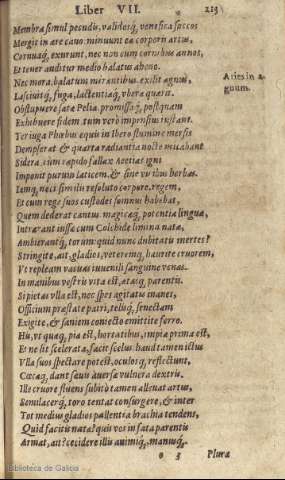 Liber VII. 213
Membra simul pecudis, validosq́, venefica succos
Mergit in ære cavo: minuunt ea corporis artus,
Cornuaq́, exurunt, nec non cum cornibus annos,
Et tener auditur medio balatus aheno.
Nec mora, balatum mirantibus exilit agnus,
Aries in a-
gnum.
Lascivitq́, fuga, lactentiaq́, vbera quærit.
Obstupuere satæ Pelia, promissaq́, postquam
Exhibuere fidem tum verò impensius instant.
Ter iuga Phœbus equis in Ibero flumine mersis
Dempserat & quarta radiantia nocte micabant
Sidera, cum rapido fallax Aeetias igni
Imponit purum laticem, & sine viribus herbas.
Iamq́, neci similis resoluto corpore, regem,
Et cum rege suos custodes somnus habebat,
Quem dederat cantus magicæq́, potentia linguæ,
Intrarant iussæ cum Colchide limina natæ,
Ambierantq́, torum: quid nunc dubitatis inertes?
Stringite, ait, gladios, veteremq́, haurite cruorem,
Vt repleam vacuas iuuenili sanguine venas.
In manibus vestris vita est, ætasq́, parentis.
Si pietas vlla est, nec spes agitatis inanes,
Officium præstate patri, telisq́, senectam
Exigite, & saniem coniecto emittite ferro.
His, vt quæq́, pia est, hortatibus, impia prima est,
Et ne sit scelerata, facit scelus. haud tamen ictus
Vlla suos spectare potest, oculosq́, reflectunt,
Cæcaq́, dant sæuis auersæ vulnera dextris.
Ille cruore fluens cubito tamen alleuat artus,
Semilacerq́, toro tentat consurgere, & inter
Tot medius gladios pallentia brachia tendens,
Quid facitis natæ? quis vos in fata parentis
Armat, ait? cecidere illis animiq́, manusq́.
o 3 Plura
Biblioteca de Galicia